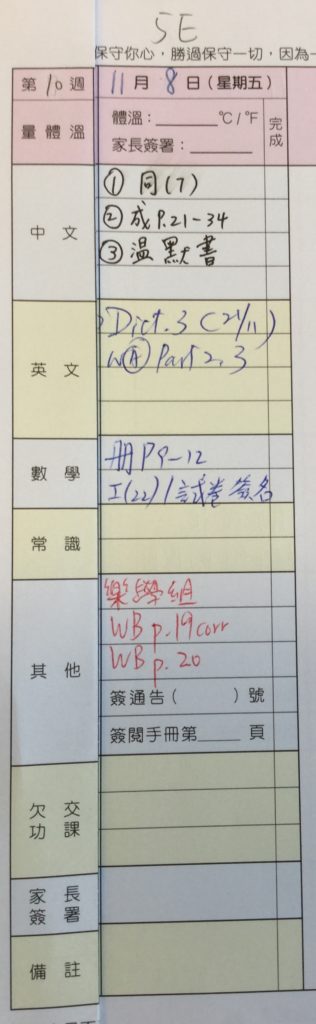 5E
保守你心，勝過保守一切，因為
第10週 11月8日(星期五)
量體溫 體溫：______°C/°F 完成
家長簽署：______
中文 ①同(7)
②成P.21-34
③温默書
英文 Dict. 3 (21/11)
WA Part 2, 3
數學 冊P9-12
工(22)/試卷簽名
常識
其他 樂學組
WB p.19 corr
WB p.20
簽通告( )號
簽閱手冊第____頁
欠交功課
家長簽署
備註